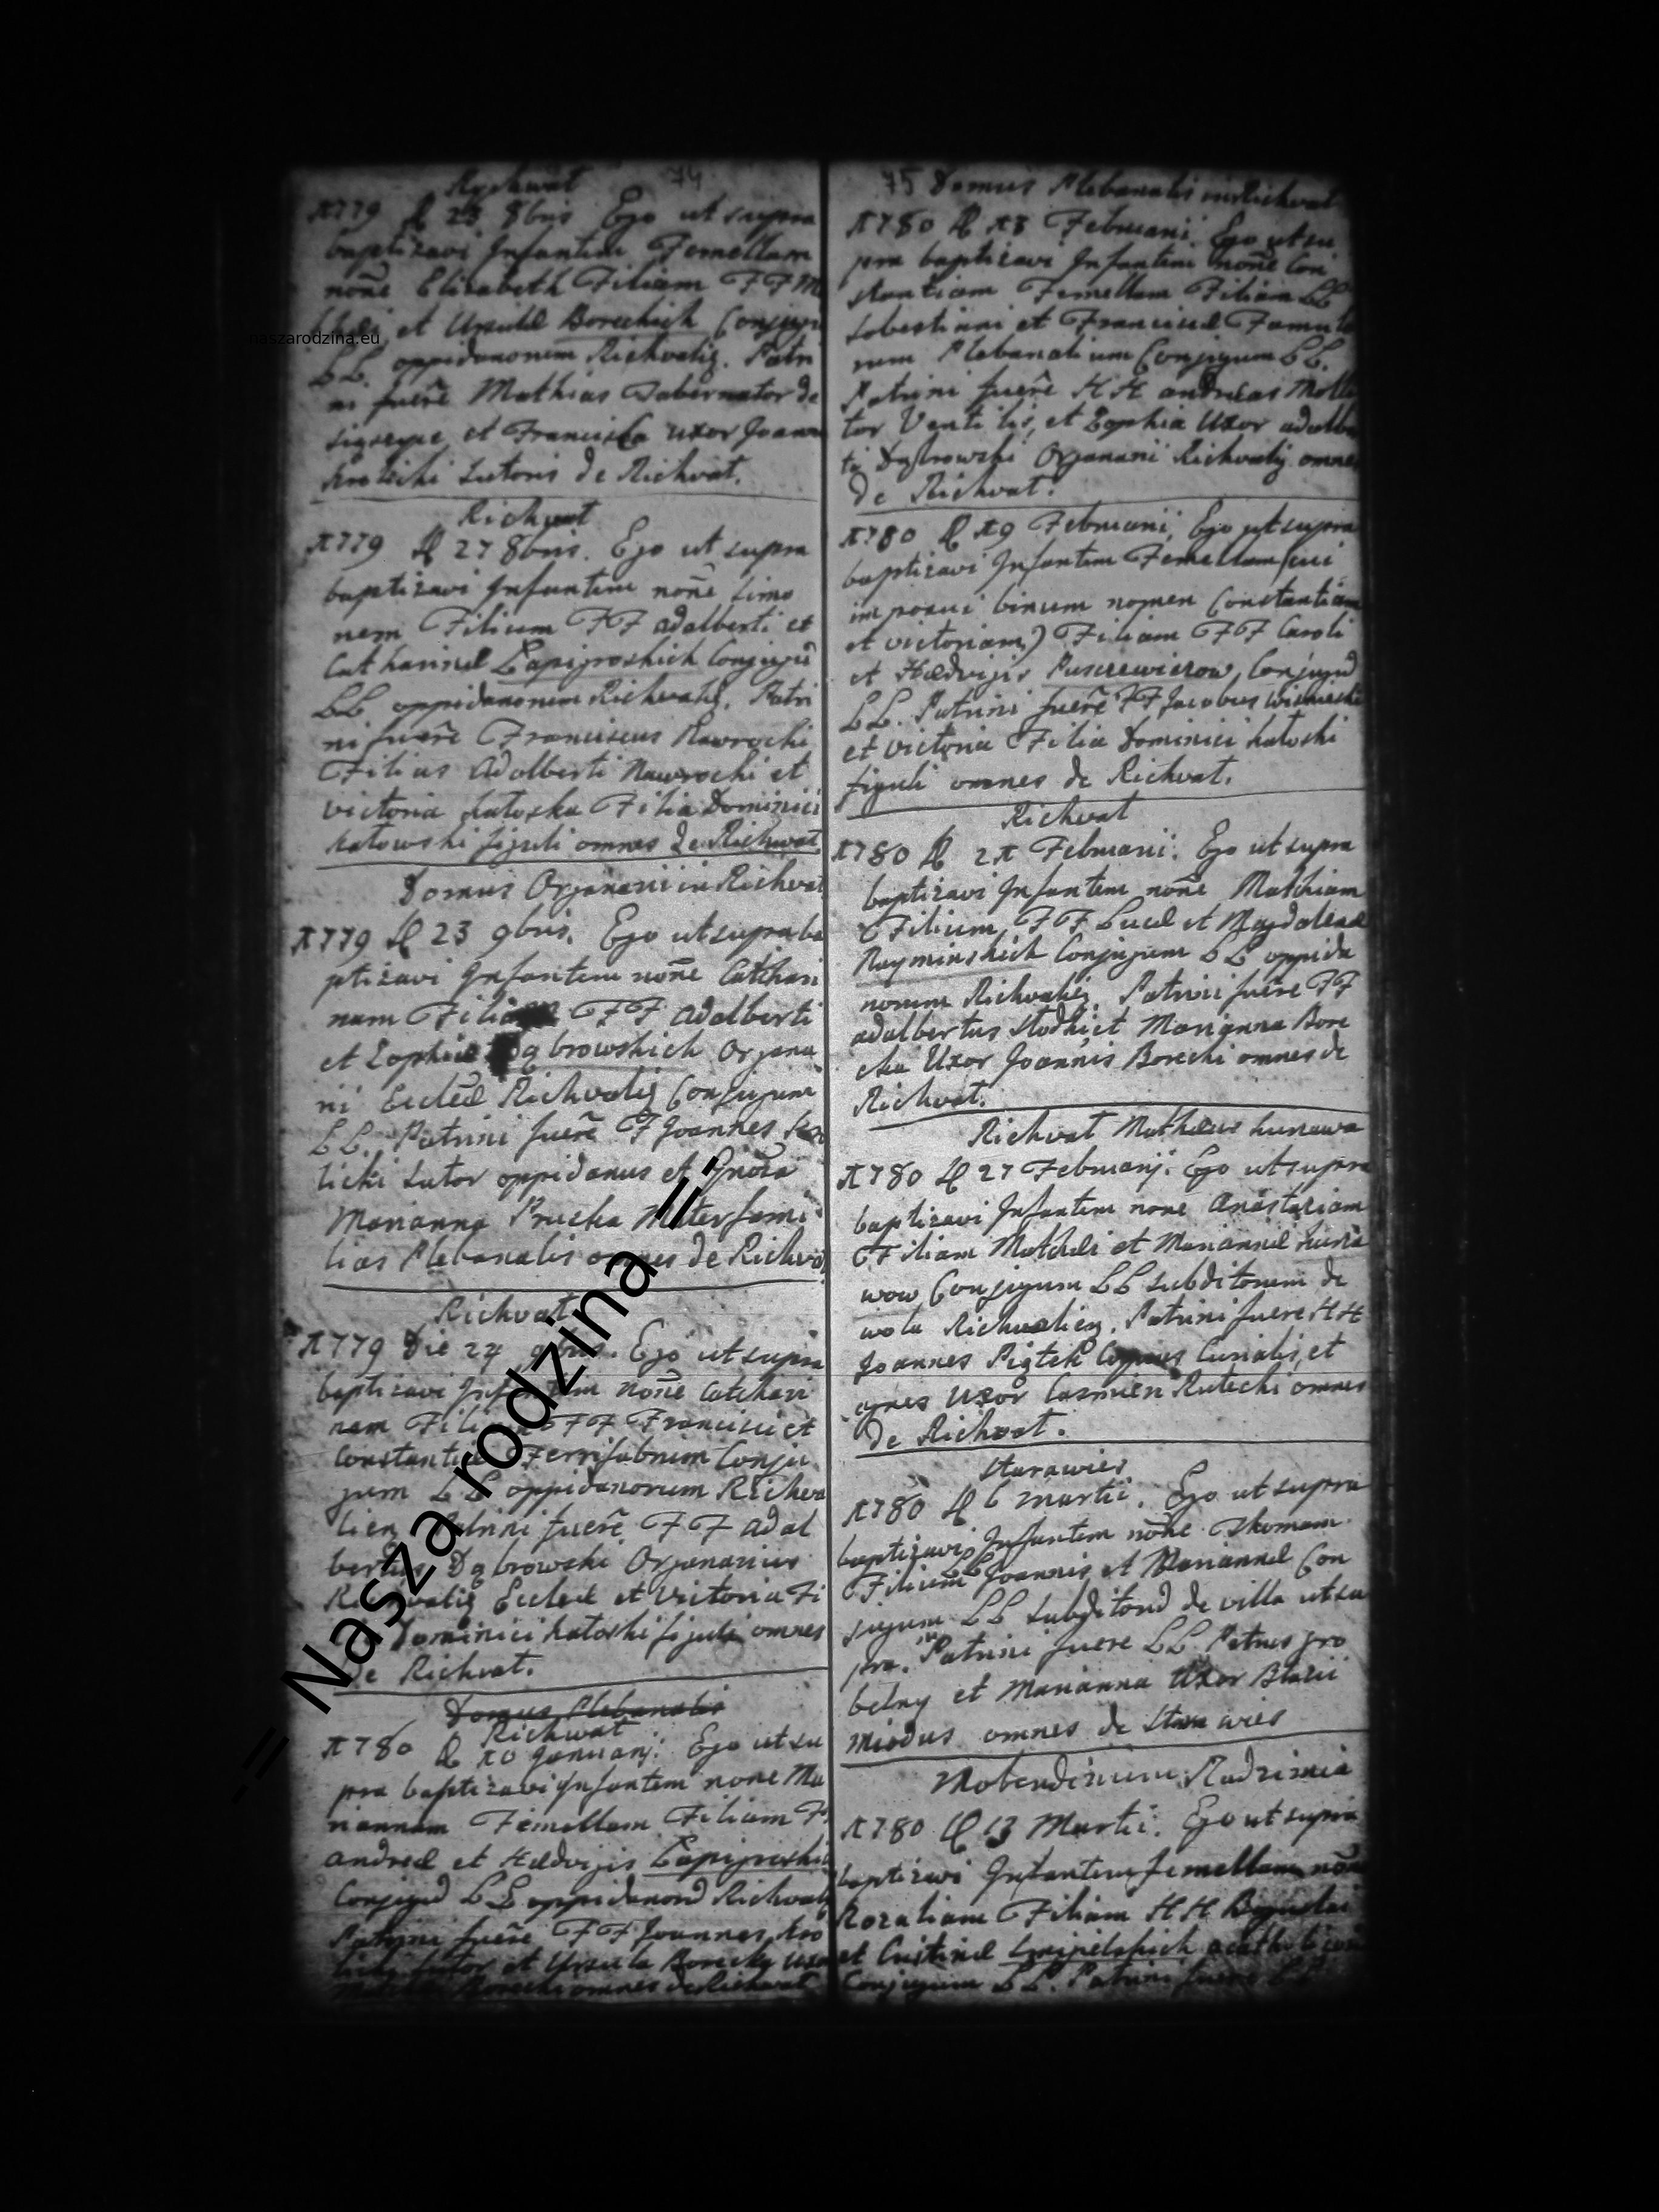 Rychwat 74
1779 D 23 8bris Ego ut supra
baptizavi Infantem Femellam
noñe Elisabeth Filiam FF M
et Ursulæ Boreckich Conjugu
LL. oppidanorum Richvalie. Patri
ni fuere Mathias Tabernator de
et Francisca uxor Joann
Sutoris de Richvat.
Richvat
1779 D 27 8bris. Ego ut supra
baptizavi Infantem noñe Simo
nem Filium FF Adalberti et
Catharinæ Łapigroskich Conjugũ
LL oppidanorum Richvalie. Patri
ni fuere Franciscus Nawrocki
Filius Adalberti Nawrocki et
Victoria Katoska Filia Dominici
Katowski figuli omnes de Richwat
Domus Organarii in Richvat
1779 D 23 9bris. Ego ut supra ba
ptizavi Infantem noñe Catthari
nam Filiam FF Adalberti
et Zophiæ Dąbrowskich Organa
rii Eccleæ Richvalie Conjugum
LL. Patrini fuere F Joannes
licki Sutor oppidanus et Gnosa
Marianna Pruska Materfami
lias Plebanalis omnes de Richva
Richvat
1779 Die 24 9bris. Ego ut supra
baptizavi Infantem noñe Catthari
nam Filiam FF Francisci et
Constantiæ Ferrifabrum Conju
gum LL oppidanorum Richva
lien Patrini fuere FF Adal
bertus Dąbrowski Organarius
Richvalie Eccleæ et Victoria Fi
Dominici Katoski figuli omnes
de Richvat.
Domus Plebanalis
Richwat
1780 D 10 Januarij. Ego ut su
pra baptizavi Infantem none Ma
riannam Femellam Filiam F
Andreæ et Hædvigis Łapigroski
Conjugũ LL oppidanorũ Richval
Patrini fuere FF Joannes Kro
licki Sutor et Ursula Borecka uxor
Borecki omnes de Richwat
75 Domus Plebanalis in Richvat
1780 D 13 Februarii. Ego ut su
pra baptizavi Infantem noñe Con
stantiam Femellam Filiam LL
Sobestiani et Franciscæ Famulo
rum Plebanalium Conjugum LL.
Patrini fuere HH Andreas Moli
tor Ventilis, et Zophia Uxor Adalb
ti Dąbrowski Organarii Richvalij omnes
de Richvat.
1780 D 19 Februarii, Ego ut supra
baptizavi Infantem Femellam (cui
imposui binum nomen Constantiam
et Victoriam) Filiam FF Caroli
et Hædvigis Puscrewicrow, Conjugũ
LL. Patrini fuere FF Jacobus Wisniecki
et Victoria Filia Dominici Katoski
figuli omnes de Richvat.
Richvat
1780 D 21 Februarii. Ego ut supra
baptizavi Infantem noñe Mathiam
Filium FF Lucæ et Magdalenæ
Rayminskich Conjugum LL oppida
norum Richvalie. Patrini fuere FF
Adalbertus Stodki et Marianna Bore
cka Uxor Joannis Borecki omnes de
Richvat.
Richvat Mathæus Kurawa
1780 D 27 Februarij. Ego ut supra
baptizavi Infantem none Anastasiam
Filiam Mathæi et Mariannæ Kura
wow Conjugum LL Subditorum de
wola Richvalien. Patrini fuere HH
Joannes Piątek Curialis, et
Agnes Uxor Casmieri Rutecki omnes
de Richvat.
Starawies
1780 D 6 Martii. Ego ut supra
baptizavi Infantem noñe Thomam
Filium LL Joannis et Mariannæ Con
jugum LL Subditorũ de villa ut su
pra. Patrini fuere LL Petrus gro
belny et Marianna Uxor Blasii
Miodus omnes de Stara wies
Molendinum Radzimia
1780 D 13 Martii. Ego ut supra
baptizavi Infantem femellam noñe
Rozaliam Filiam HH Boguslai
et Cristinæ acatholicorũ
Conjugum LL. Patrini fuere LL
naszarodzina.eu
-= Nasza rodzina =-